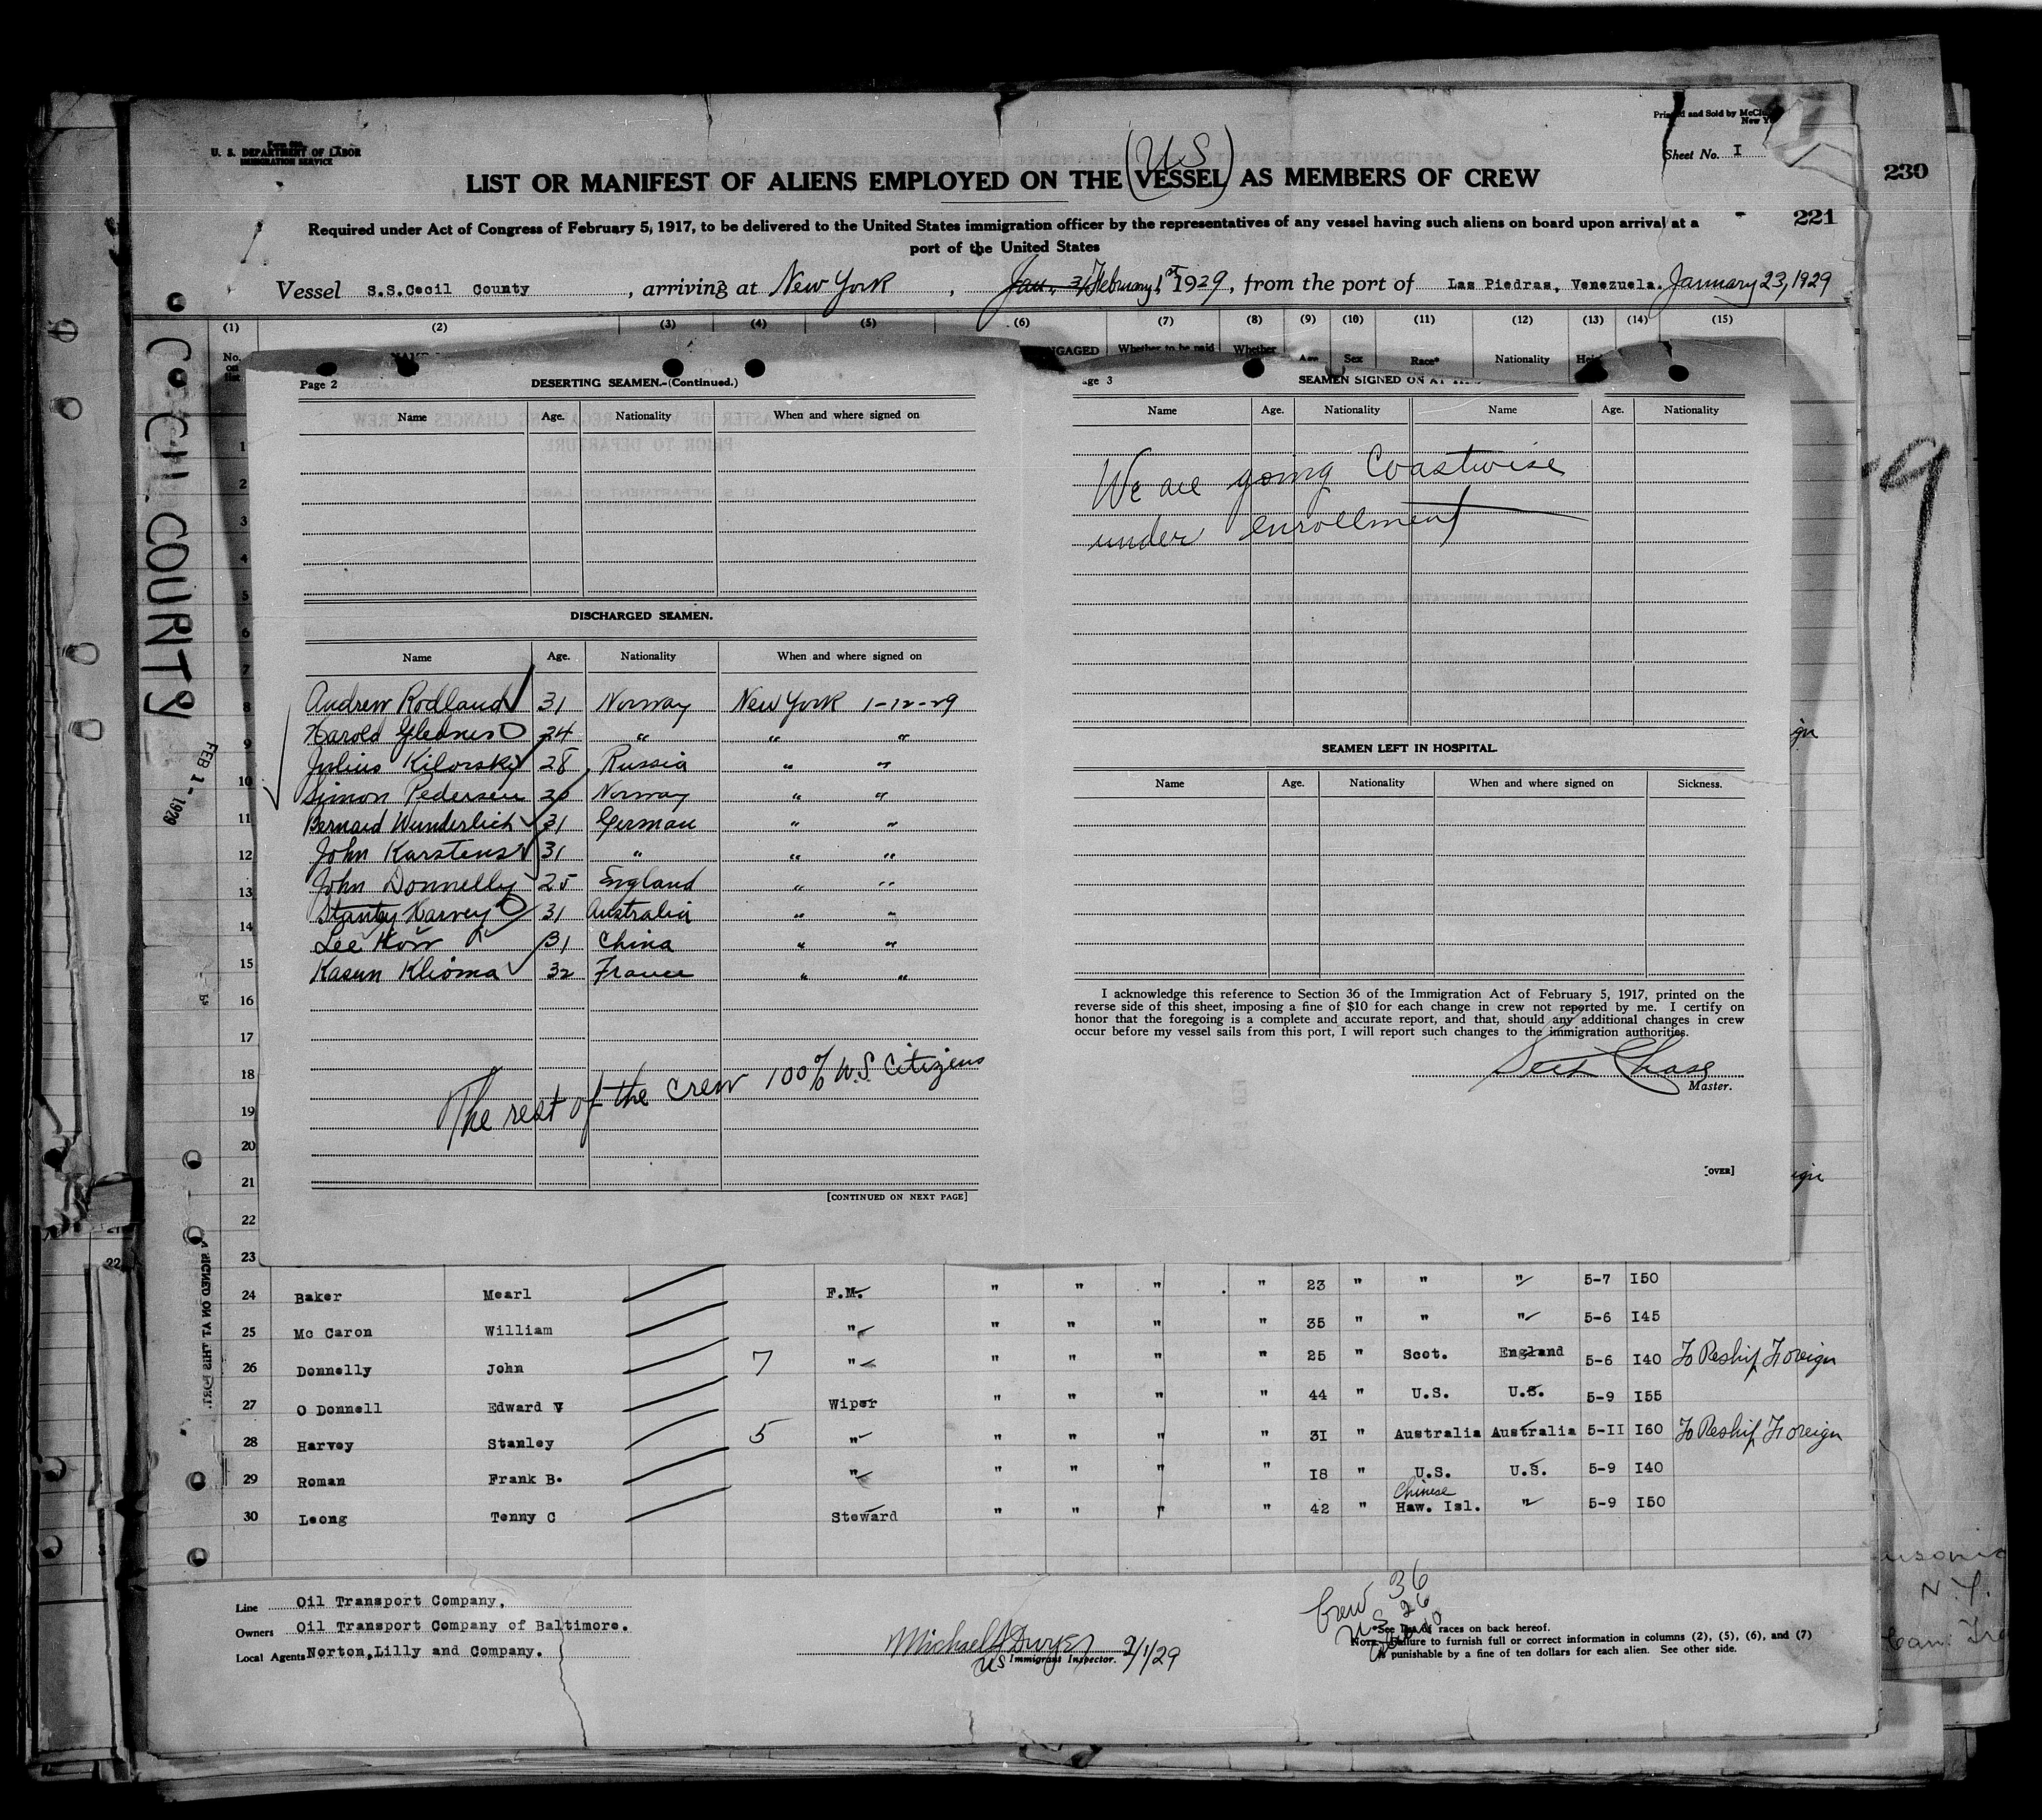 Form 689
U. S. DEPARTMENT OF LABOR
IMMIGRATION SERVICE
Printed and Sold by
New Y
Sheet No. I
230
(US)
LIST OR MANIFEST OF ALIENS EMPLOYED ON THE VESSEL AS MEMBERS OF CREW
221
Required under Act of Congress of February 5, 1917, to be delivered to the United States immigration officer by the representatives of any vessel having such aliens on board upon arrival at a
port of the United States
Vessel S.S.Cecil County, arriving at New York, Jan. 31 February 1st 1929, from the port of Las Piedras, Venezuela. January 23, 1929
(1) (2) (3) (4) (5) (6) (7) (8) (9) (10) (11) (12) (13) (14) (15)
No. on list
NGAGED Whether to be paid Whether Age Sex Race* Nationality
CECIL COUNTY
FEB 1 - 1929
9
Page 2 DESERTING SEAMEN.-(Continued.)
Name Age. Nationality When and where signed on
DISCHARGED SEAMEN.
Name Age. Nationality When and where signed on
Andrew Rodland 31 Norway New York 1-12-29
Harold Glednes 24 " " "
Julius Kilorsky 28 Russia " "
Simon Pedersen 26 Norway " "
Bernard Wunderlich 31 German " "
John Karstens 31 " " "
John Donnelly 25 England " "
Stanley Harvey 31 Australia " "
Lee How 31 China " "
Kasun Klioma 32 France " "
The rest of the crew 100% U.S. Citizens
[CONTINUED ON NEXT PAGE]
age 3 SEAMEN SIGNED ON AT THIS
Name Age. Nationality Name Age. Nationality
We are going Coastwise
under enrollment
SEAMEN LEFT IN HOSPITAL.
Name Age. Nationality When and where signed on Sickness.
I acknowledge this reference to Section 36 of the Immigration Act of February 5, 1917, printed on the
reverse side of this sheet, imposing a fine of $10 for each change in crew not reported by me. I certify on
honor that the foregoing is a complete and accurate report, and that, should any additional changes in crew
occur before my vessel sails from this port, I will report such changes to the immigration authorities.
Seth Chase
Master.
[OVER]
1
2
3
4
5
6
7
8
9
10
11
12
13
14
15
16
17
18
19
20
21
22
23
24 Baker Mearl F.M. " " " " 23 " " " 5-7 I50
25 Mc Caron William " " " " " 35 " " " 5-6 I45
26 Donnelly John 7 " " " " " 25 " Scot. England 5-6 I40 To Reship Foreign
27 O Donnell Edward V Wiper " " " " 44 " U.S. U.S. 5-9 I55
28 Harvey Stanley 5 " " " " " 3I " Australia Australia 5-II I60 To Reship Foreign
29 Roman Frank B. " " " " " I8 " U.S. U.S. 5-9 I40
Chinese
30 Leong Tenny C Steward " " " " 42 " Haw. Isl. " 5-9 I50
Line Oil Transport Company,
Owners Oil Transport Company of Baltimore.
Local Agents Norton,Lilly and Company.
Michael J Dwyer
US Immigrant Inspector. 2/1/29
Crew 36
U.S. 26
10
*See list of races on back hereof.
NOTE.-Failure to furnish full or correct information in columns (2), (5), (6), and (7)
is punishable by a fine of ten dollars for each alien. See other side.
N.Y.